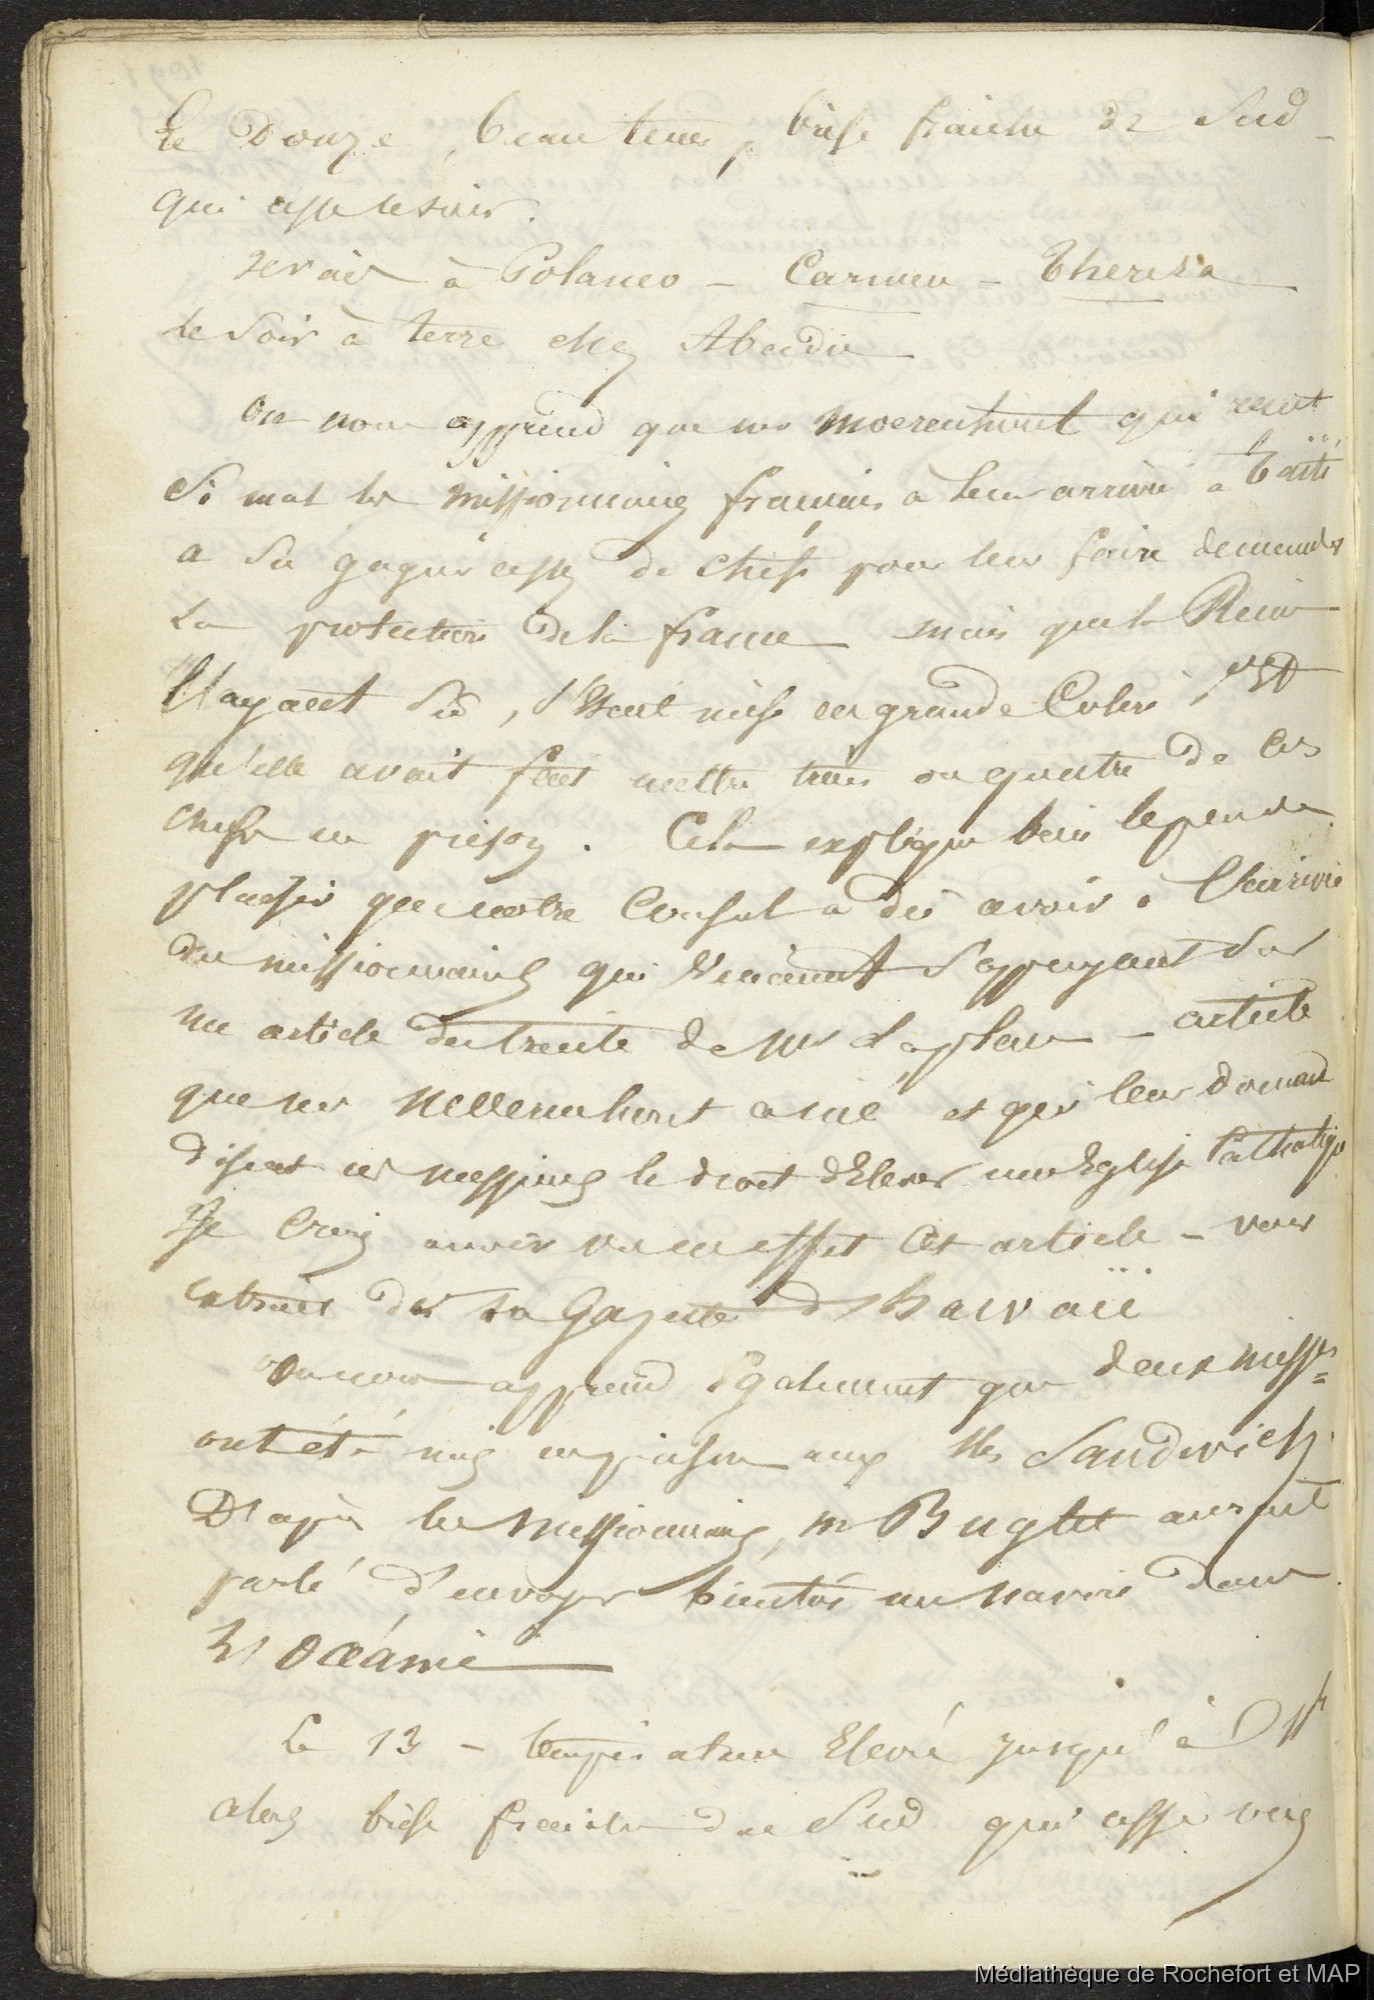 Le Douze, beau tems, brise fraiche de Sud
qui cesse le soir.
à Polanco - Carmen - Theresa
le soir à terre chez Abadie
On nous apprend que mr Moerenhout qui reçut
si mal les missionnaires français à leur arrivée à Taïti
a su gagner assez de chefs pour leur faire demander
la protection de la france mais que la Reine
l'ayant su, s'était mise en grande Colere, et
qu'elle avait fait mettre trois ou quatre de ces
chefs en prison. Cela explique bien le peu de
plaisir que notre Consul a dû avoir à l'arrivée
des missionnaires qui venaient s'appuyant sur
un article du traité de mr Laplace - article
que mr Moerenhout a nié et qui leur donnait
disent ces messieurs le droit d'Elever une Eglise Catholique
Je Crois avoir vu en effet cet article - voir
extrait de la Gazette d'hawaii
On nous apprend également que deux miss.es
ont été mis en prison aux Iles Sandwich
D'après les missionnaires, mr Buglet aurait
parlé d'envoyer bientôt un navire dans
L'Océanie
Le 13 - température Elevée jusqu'à
alors brise fraiche du Sud qui cesse vers
Médiathèque de Rochefort et MAP